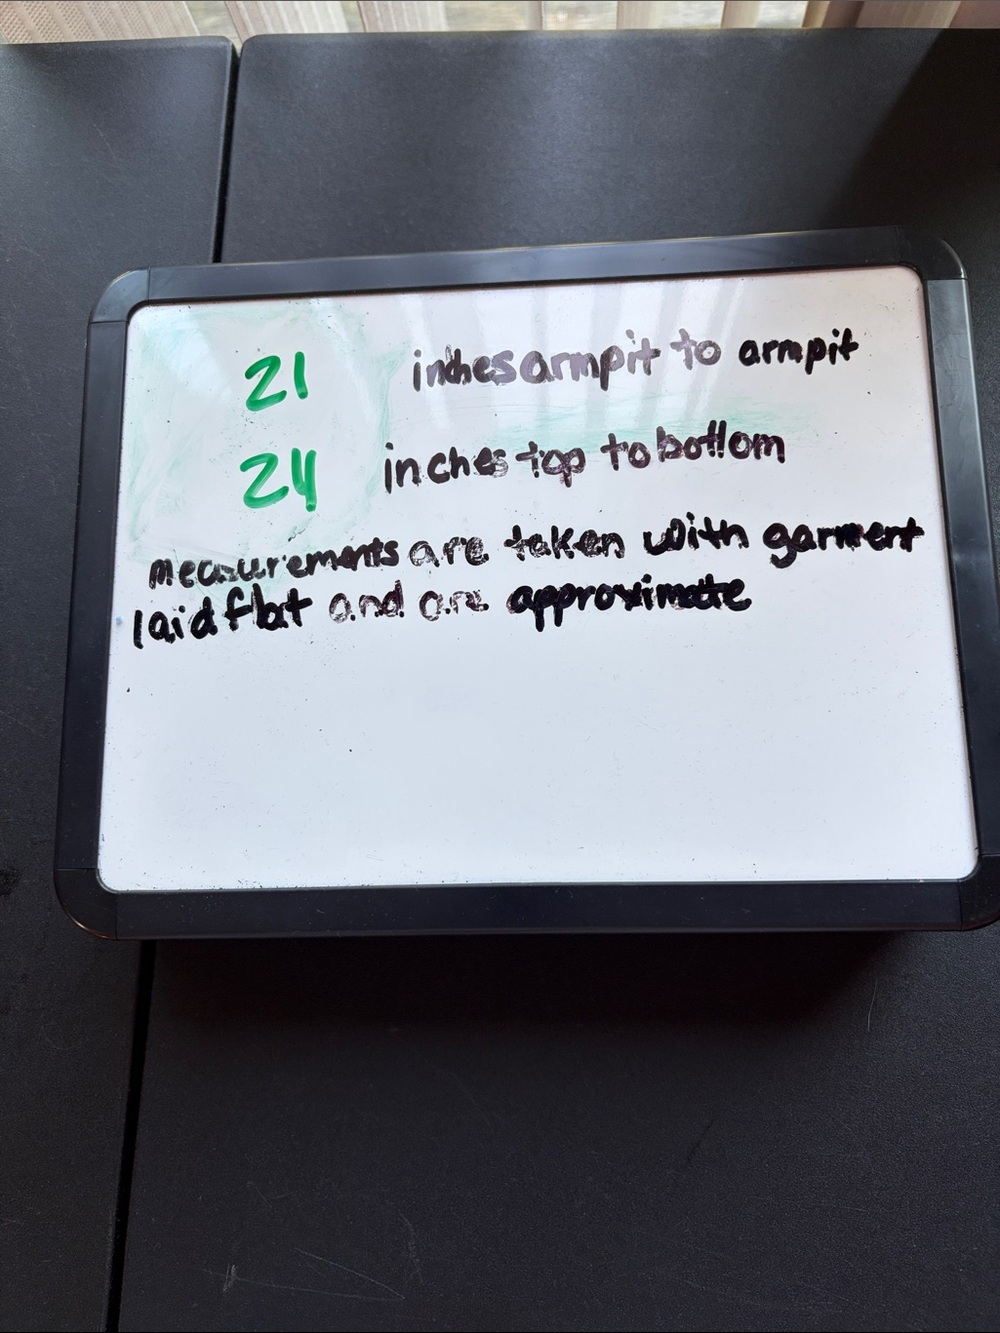 21 inches armpit to armpit
24 inches top to bottom
measurements are taken with garment
laid flat and are approximate